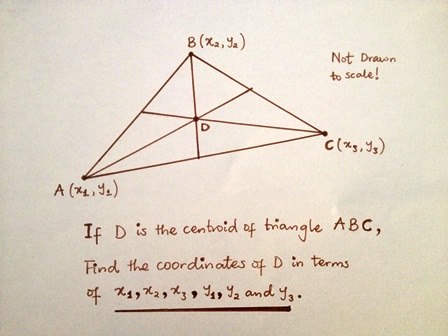 B (x₂, y₂)
Not Drawn
to scale!
D
C (x₃, y₃)
A (x₁, y₁)
If D is the centroid of triangle ABC,
Find the coordinates of D in terms
of x₁, x₂, x₃, y₁, y₂ and y₃.